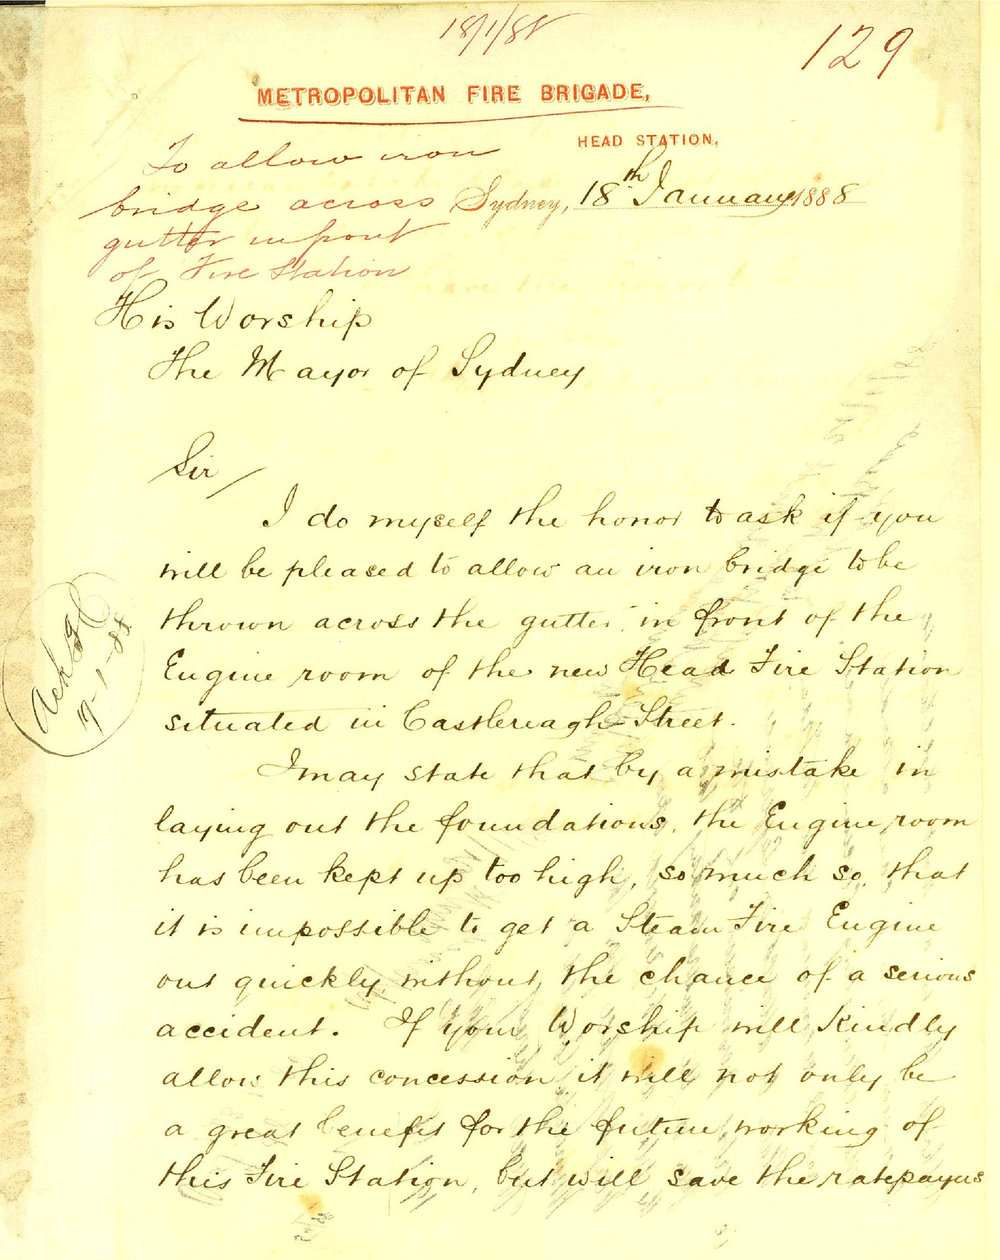 18/1/88
129
METROPOLITAN FIRE BRIGADE,
HEAD STATION,
To allow iron
bridge across
gutter in front
of Fire Station
Sydney, 18th January 1888
His Worship
The Mayor of Sydney
Sir
I do myself the honor to ask if you
will be pleased to allow an iron bridge to be
thrown across the gutter in front of the
Engine room of the new Head Fire Station
situated in Castlereagh Street.
Ack
19-1-88
I may state that by a mistake in
laying out the foundations, the Engine room
has been kept up too high, so much so, that
it is impossible to get a Steam Fire Engine
out quickly without the chance of a serious
accident. If your Worship will kindly
allow this concession it will not only be
a great benefit for the future working of
this Fire Station, but will save the ratepayers